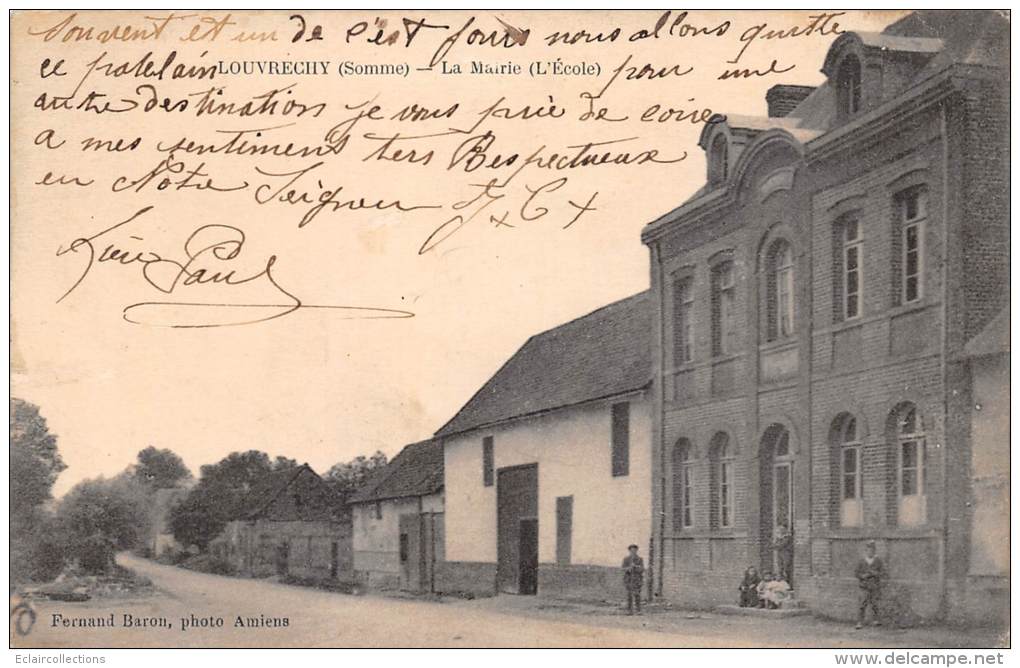 Souvent et un de c'est jours nous allons quitte
ce patelain pour une
LOUVRECHY (Somme) – La Mairie (L'École)
autre destination je vous prie de coire
a mes sentiments ters Respectueux
en Notre Seigneur J x C x
Paul
Fernand Baron, photo Amiens
Eclaircollections
http://www.delcampe.net